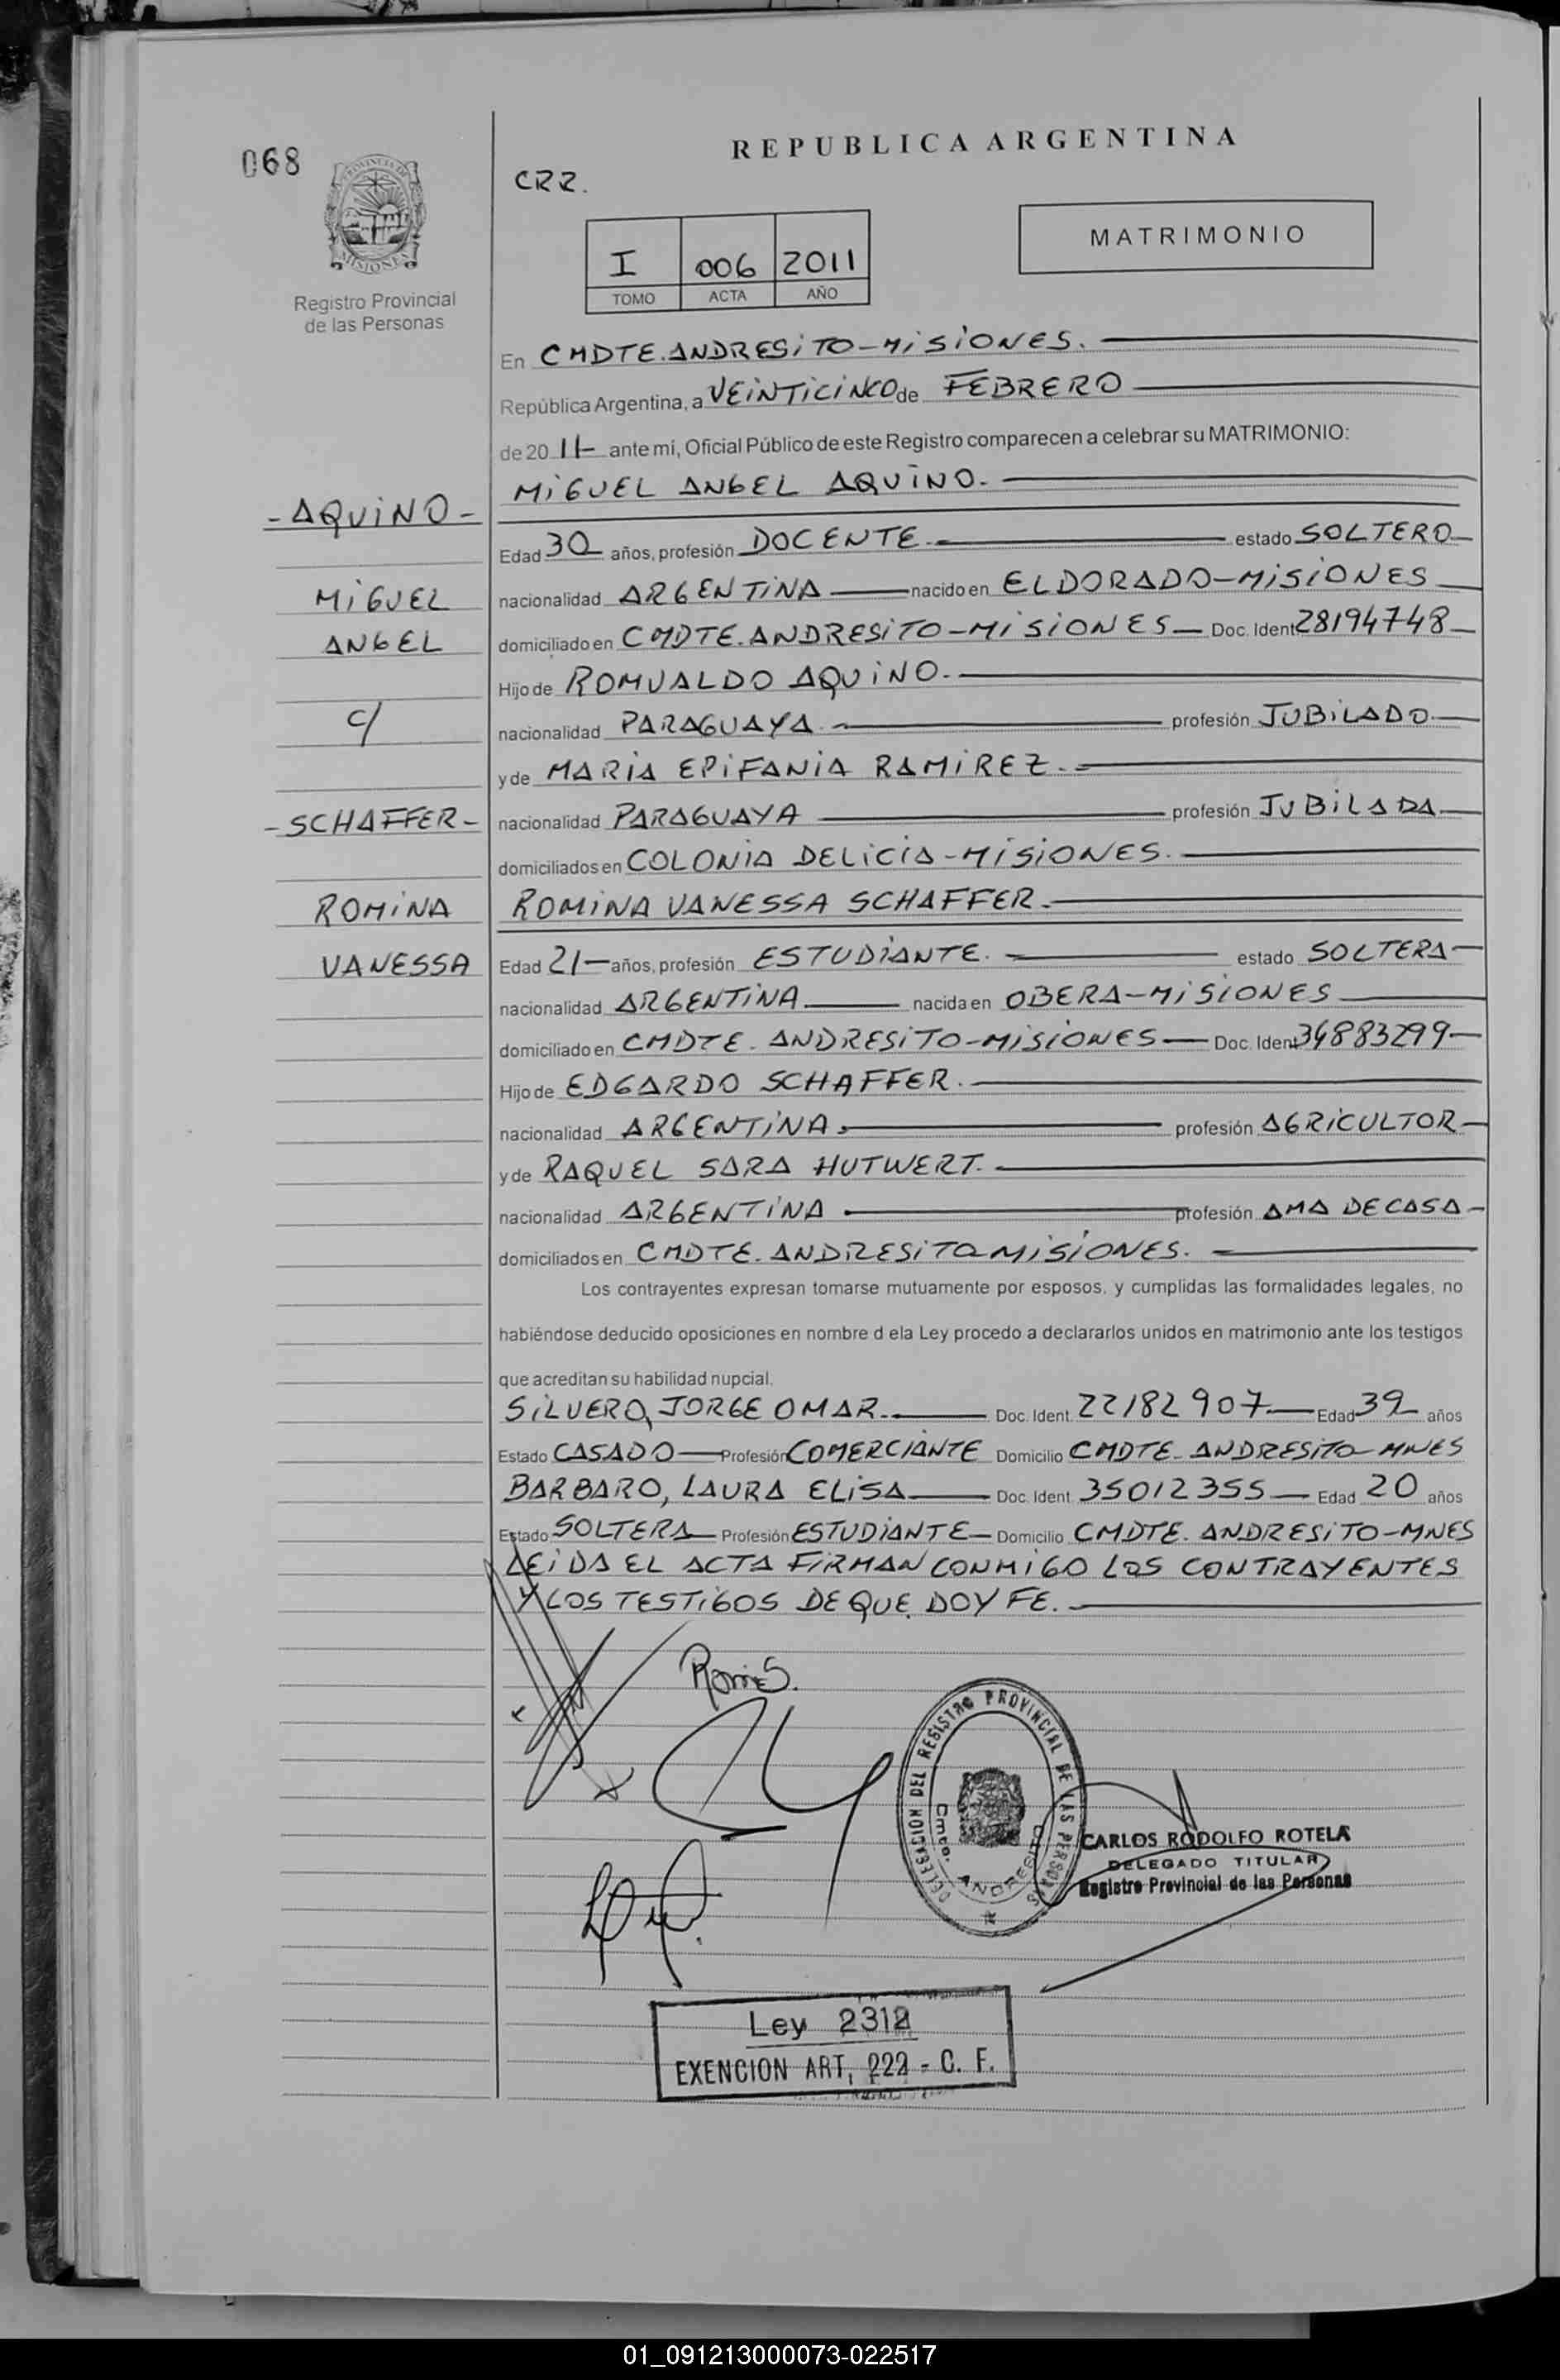 068
REPUBLICA ARGENTINA
CRR.
PROVINCIA DE
MISIONES
Registro Provincial
de las Personas
I 006 2011
TOMO ACTA AÑO
MATRIMONIO
En CMDTE. ANDRESITO-MISIONES.
República Argentina, a VEINTICINCO de FEBRERO
de 20 11 ante mí, Oficial Público de este Registro comparecen a celebrar su MATRIMONIO:
MIGUEL ANGEL AQUINO.
-AQUINO-
Edad 30 años, profesión DOCENTE. estado SOLTERO
MIGUEL
nacionalidad ARGENTINA nacido en ELDORADO-MISIONES
ANGEL
domiciliado en CMDTE. ANDRESITO-MISIONES Doc. Ident 28194748
Hijo de ROMUALDO AQUINO.
C/
nacionalidad PARAGUAYA profesión JUBILADO
y de MARIA EPIFANIA RAMIREZ.
-SCHAFFER-
nacionalidad PARAGUAYA profesión JUBILADA
domiciliados en COLONIA DELICIA-MISIONES.
ROMINA
ROMINA VANESSA SCHAFFER.
VANESSA
Edad 21 años, profesión ESTUDIANTE. estado SOLTERA
nacionalidad ARGENTINA nacida en OBERA-MISIONES
domiciliado en CMDTE. ANDRESITO-MISIONES Doc. Ident 34883299
Hijo de EDGARDO SCHAFFER.
nacionalidad ARGENTINA. profesión AGRICULTOR
y de RAQUEL SARA HUTWERT.
nacionalidad ARGENTINA profesión AMA DE CASA
domiciliados en CMDTE. ANDRESITO-MISIONES.
Los contrayentes expresan tomarse mutuamente por esposos, y cumplidas las formalidades legales, no
habiéndose deducido oposiciones en nombre d ela Ley procedo a declararlos unidos en matrimonio ante los testigos
que acreditan su habilidad nupcial.
SILVERO, JORGE OMAR. Doc. Ident. 22182907 Edad 39 años
Estado CASADO Profesión COMERCIANTE Domicilio CMDTE. ANDRESITO-MNES
BARBARO, LAURA ELISA Doc. Ident. 35012355 Edad 20 años
Estado SOLTERA Profesión ESTUDIANTE Domicilio CMDTE. ANDRESITO-MNES
LEIDA EL ACTA FIRMAN CONMIGO LOS CONTRAYENTES
Y LOS TESTIGOS DE QUE DOY FE.
DELEGACION DEL REGISTRO PROVINCIAL DE LAS PERSONAS
Cmte. ANDRESITO
CARLOS RODOLFO ROTELA
DELEGADO TITULAR
Registro Provincial de las Personas
Ley 2312
EXENCION ART, 222 - C. F.
01_091213000073-022517